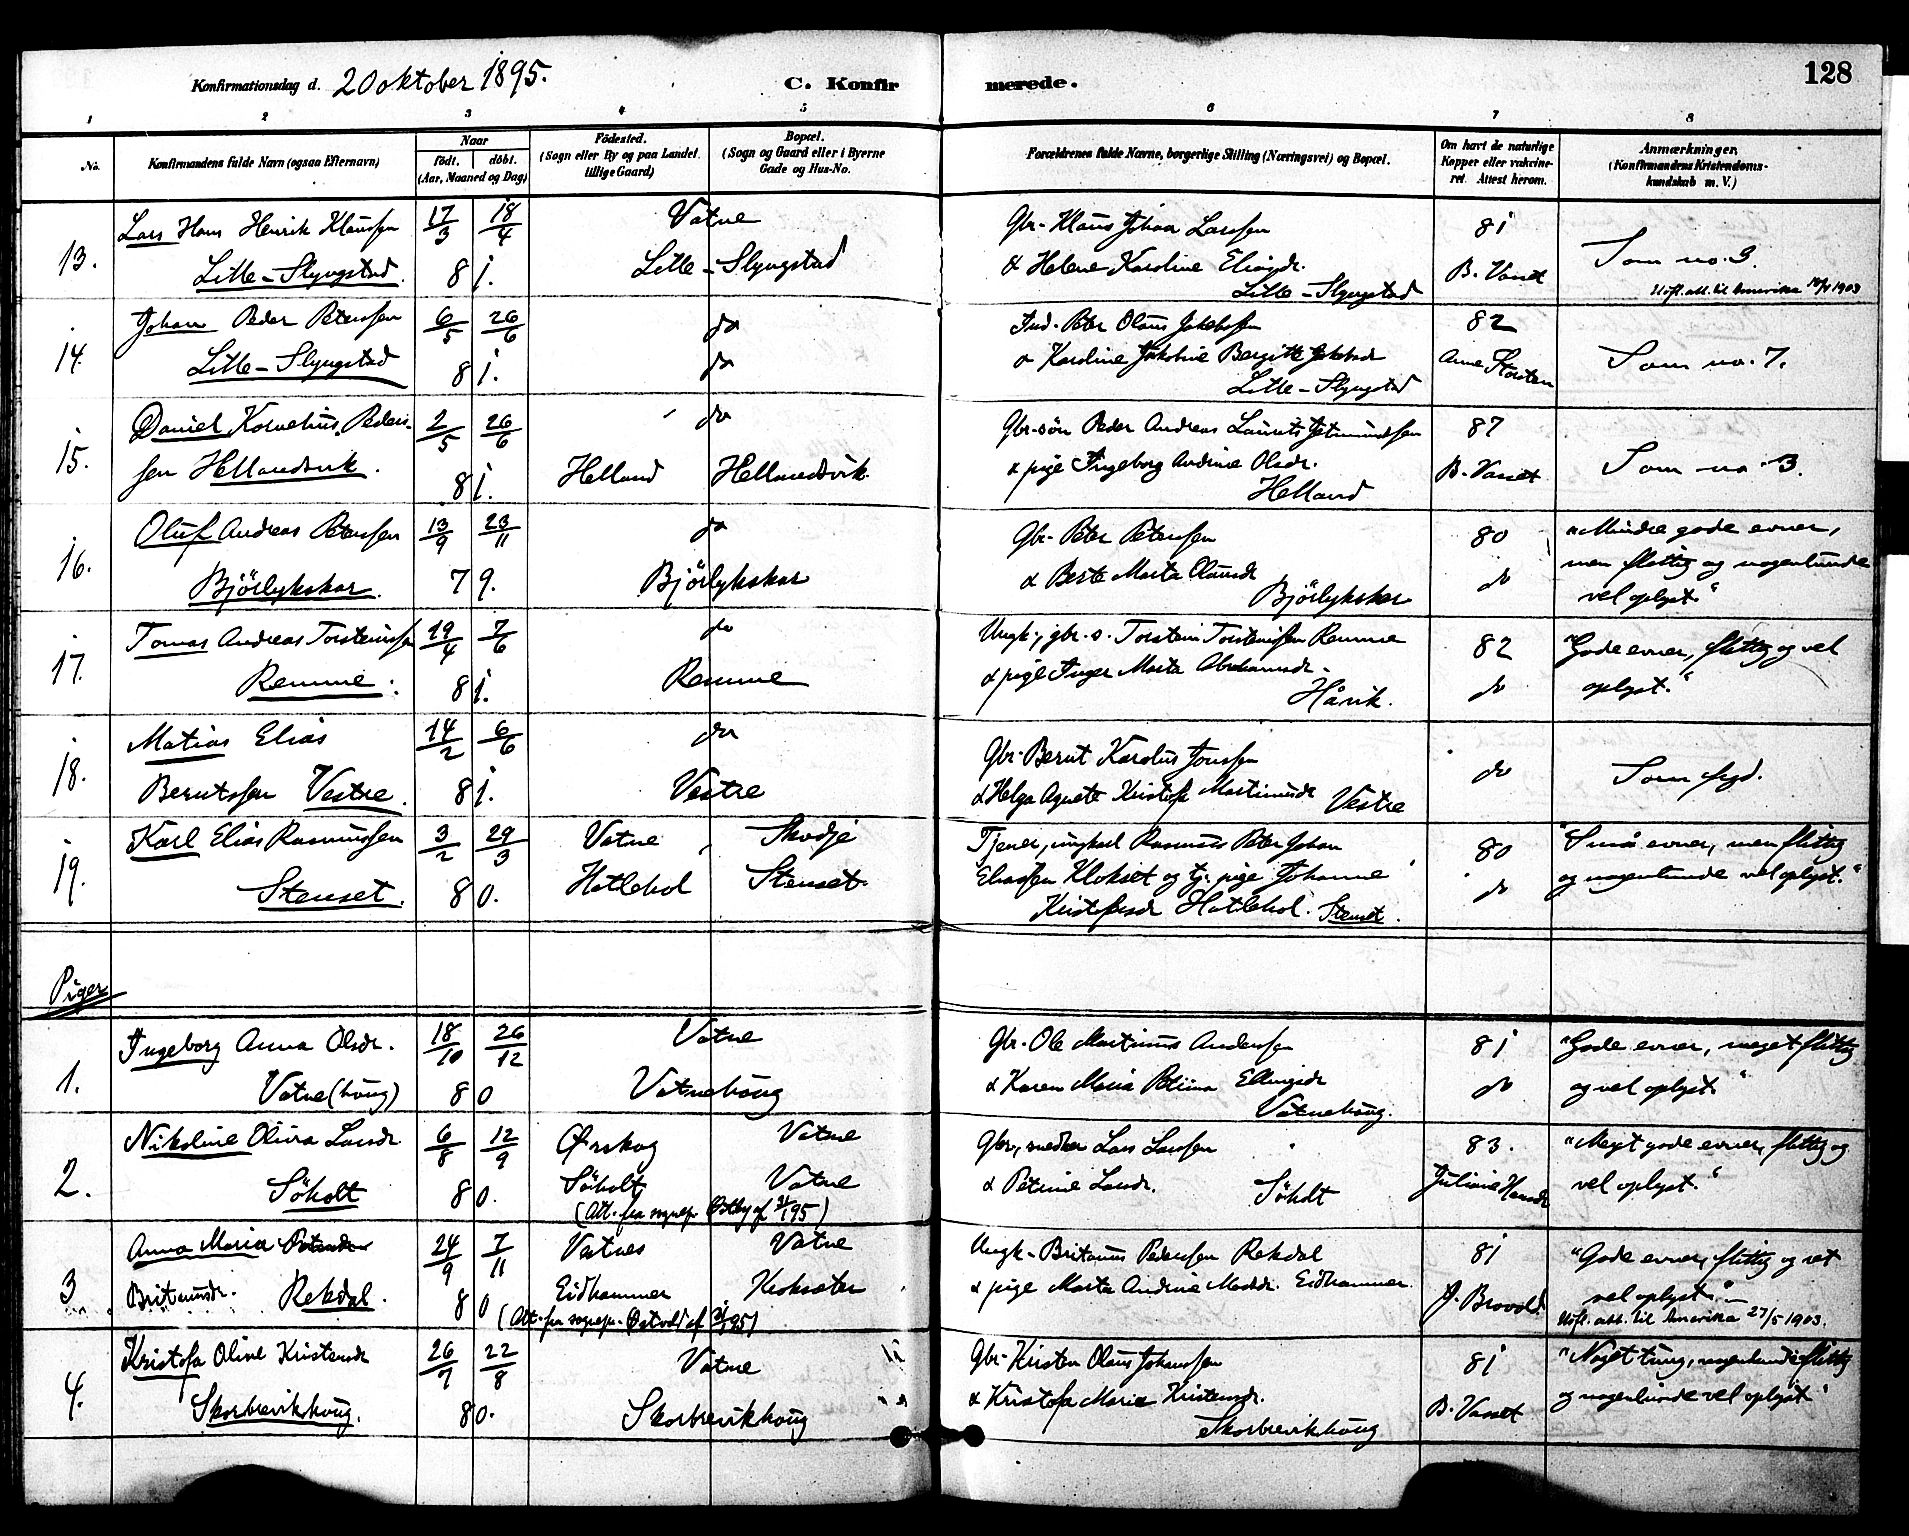 Konfirmationsdag d. 20 oktober 1895.
C. Konfirmerede.
128
1 2 3 4 5 6 7 8
No.
Konfirmandens fulde Navn (ogsaa Efternavn)
Naar
født. døbt.
(Aar, Maaned og Dag)
Fødested.
(Sogn eller By og paa Landet
tillige Gaard)
Bopæl.
(Sogn og Gaard eller i Byerne
Gade og Hus-No.
Forældrenes fulde Navne, borgerlige Stilling (Næringsvei) og Bopæl.
Om havt de naturlige
Kopper eller vakcine-
ret. Attest herom.
Anmærkninger.
(Konfirmandens Kristendoms-
kundskab m. V.)
13. Lars Hans Henrik Klaussen 17/3 18/4 Vatne Gbr. Klaus Johan Larssen 81 Som no. 3.
Lille-Slyngstad. 81. Lille-Slyngstad & Helene Karoline Eliasdr. B. Vasset
Lille-Slyngstad Udfl. att. til Amerika 1903
14. Johan Peder Peterssen 6/5 26/6 do Ind. Peter Olaus Jakobssen 82 Som no. 7.
Lille-Slyngstad 81. do & Karoline Jakobine Bergitte Anne Torsten
Lille-Slyngstad
15. Daniel Kornelius Peders- 2/5 26/6 do Gbr-søn Peder Andreas Laurits 87 Som no. 3.
sen Hellandsvik. 81. Helland Hellandsvik. & pige Ingeborg Andrine Olsdr. B. Vasset
Helland
16. Oluf Andreas Peterssen 13/9 23/11 do Gbr. Peter Peterssen 80 "Mindre gode evner,
Bjørlykskar. 79. Bjørlykskar & Berte Marta Olausdr do men flittig og nogenlunde
Bjørlykskar vel oplyst."
17. Tomas Andreas Torsteinssen 19/4 7/6 do Ungk., gbr. s. Torstein Torsteinssen Remme 82 "Gode evner, flittig og vel
Remme. 81. Remme & pige Inger Marta Abrahamsdr. do oplyst."
Håvik.
18. Matias Elias 14/2 6/6 do Gbr. Bernt Karolus Jonssen do Som fgd.
Berntssen Vestre. 81. Vestre & Helga Agnete Kristofa Martinusdr Vestre
19. Karl Elias Rasmussen 3/2 29/3 Vatne Skodje Tjener, ungkarl Rasmus Peter Johan 80 "Små evner, men flittig
Stenset. 80. Hatlehol Stenset. Eliassen Klokset og tj. pige Johanne do og nogenlunde vel oplyst."
Kristofersdr Hatlehol. Stenset.
Piger
1. Ingeborg Anna Olsdr. 18/10 26/12 Vatne Gbr. Ole Martinus Anderssen 81 "Gode evner, meget flittig
Vatne (houg) 80 Vatnehoug & Karen Maria Petrina Ellingsdr do og vel oplyst."
Vatnehoug.
2. Nikoline Oliva Larsdr 6/8 12/9 Ørskog Vatne Gbr., snedker Lars Larssen 83. "Meget gode evner, flittig og
Søholt 80. Søholt Vatne & Petrine Larsdr. Søholt Juliane Hansdr vel oplyst."
(Att. fra sognepr. Østby af 95)
3. Anna Maria 24/9 7/11 Vestnes Vatne Ungk. Britanus Pederssen Rekdal 81 "Gode evner, flittig og ret
Britanusdr. Rekdal. 80 Eidhammer Kirksæter & pige Marta Andrine Madsdr. Eidhammer. J. Brovold vel oplyst."
(Att. fra sognepr. Østvold af 95) Udfl. att. til Amerika 27/5 1903.
4. Kristofa Oline Kristensdr 26/7 22/8 Vatne Gbr. Kristen Olaus Johanssen 81 "Noget tung, nogenlunde flittig
Skorbrevikhoug. 80. Skorbrevikhoug & Kristofa Marie Kristensdr. B. Vasset og nogenlunde vel oplyst"
Skorbrevikhoug